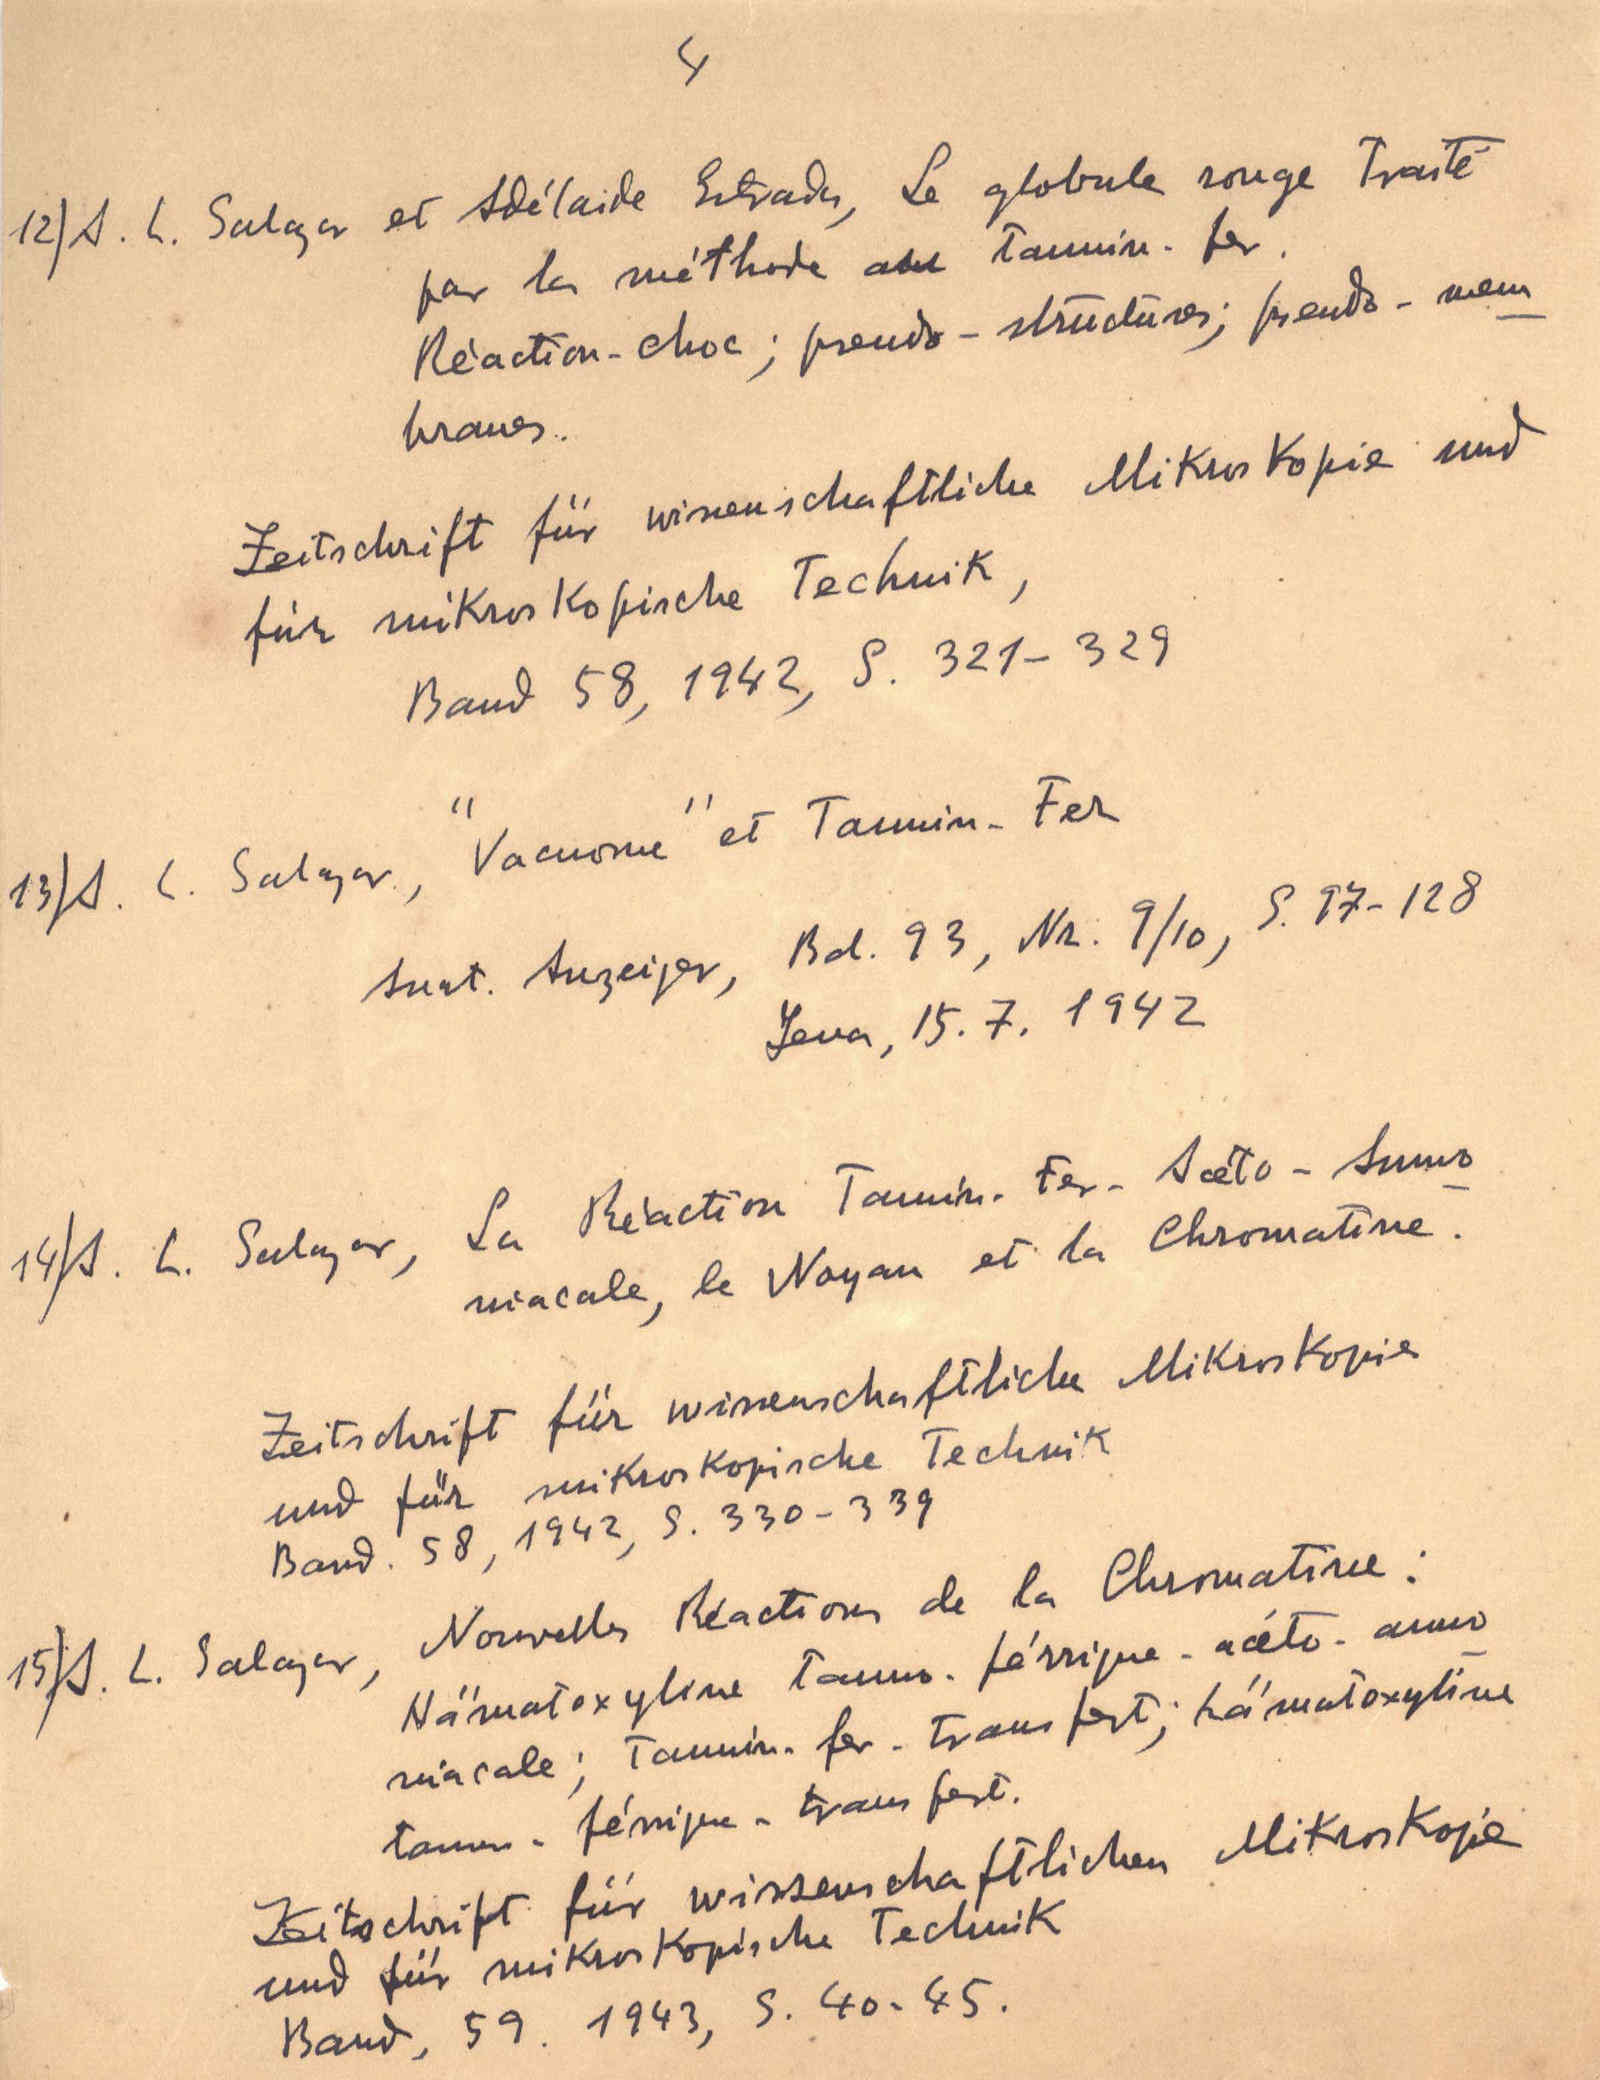 4
12) A. L. Salazar et Adélaide Estrada, Le globule rouge Traité
par la méthode au Tannin-fer.
Réaction-choc; pseudo-structures; pseudo-mem
branes.
Zeitschrift für wissenschaftliche Mikroskopie und
für mikroskopische Technik,
Band 58, 1942, S. 321-329
13) A. L. Salazar, "Vacuome" et Tannin-Fer
Anat. Anzeiger, Bd. 93, Nr. 9/10, S. 97-128
Jena, 15.7.1942
14) A. L. Salazar, La Réaction Tannin-Fer-Acéto-Ammo
niacale, le Noyau et la Chromatine.
Zeitschrift für wissenschaftliche Mikroskopie
und für mikroskopische Technik
Band. 58, 1942, S. 330-339
15) A. L. Salazar, Nouvelles Réactions de la Chromatine:
Hämatoxyline tanno-férrique-acéto-ammo
niacale; Tannin-fer-transfert; hämatoxyline
tanno-férrique-transfert.
Zeitschrift für wissenschaftlichen Mikroskopie
und für mikroskopische Technik
Band, 59. 1943, S. 40-45.